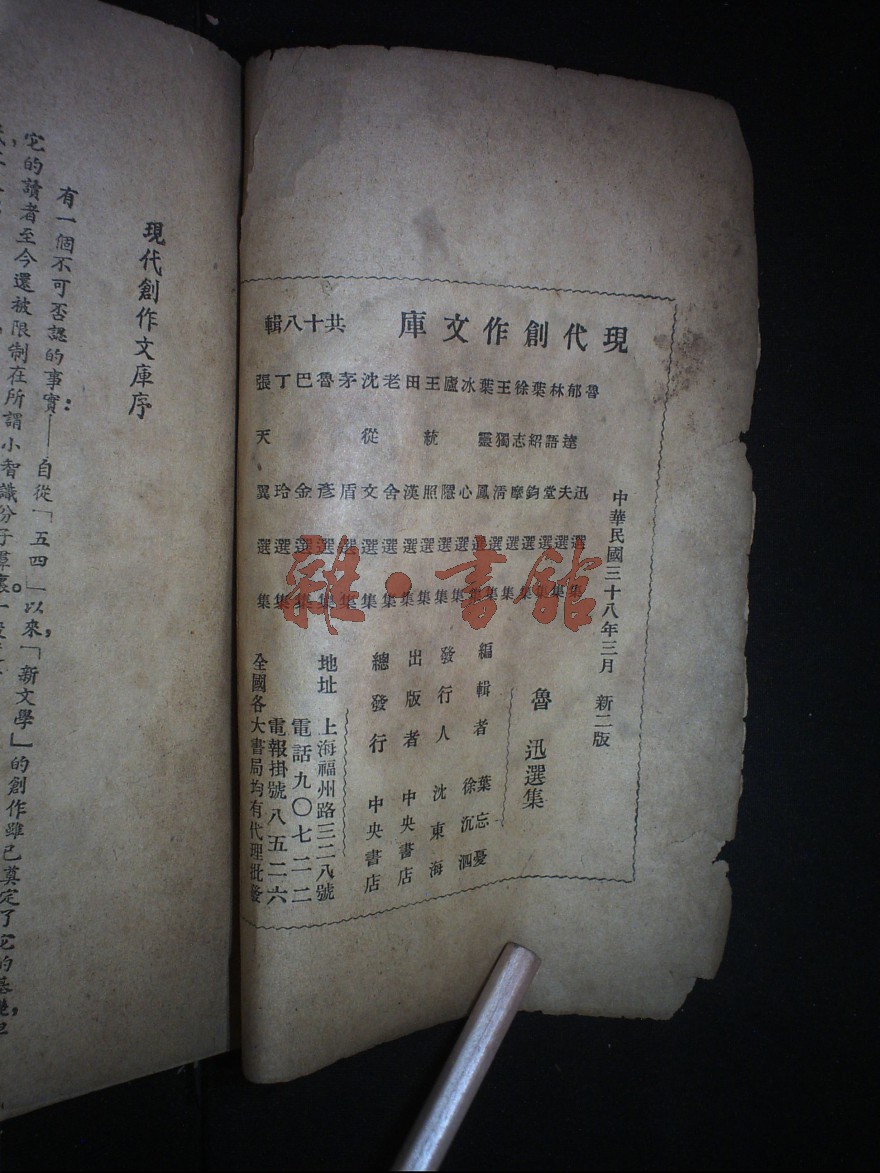 現代創作文庫 共十八輯
魯迅選集
郁達夫選集
林語堂選集
葉紹鈞選集
徐志摩選集
王獨清選集
葉靈鳳選集
冰心選集
廬隱選集
王統照選集
田漢選集
老舍選集
沈從文選集
茅盾選集
魯彥選集
巴金選集
丁玲選集
張天翼選集
中華民國三十八年三月 新二版
魯迅選集
編輯者 葉忘憂 徐沉泗
發行人 沈東海
出版者 中央書店
總發行 中央書店
地址 上海福州路三二八號
電話九〇七二二
電報掛號八五二六
全國各大書局均有代理批發
雜·書館
現代創作文庫序
有一個不可否認的事實：——自從「五四」以來，「新文學」的創作雖已奠定了它的基礎，
它的讀者至今還被限制在所謂小智識份子羣裏。一般